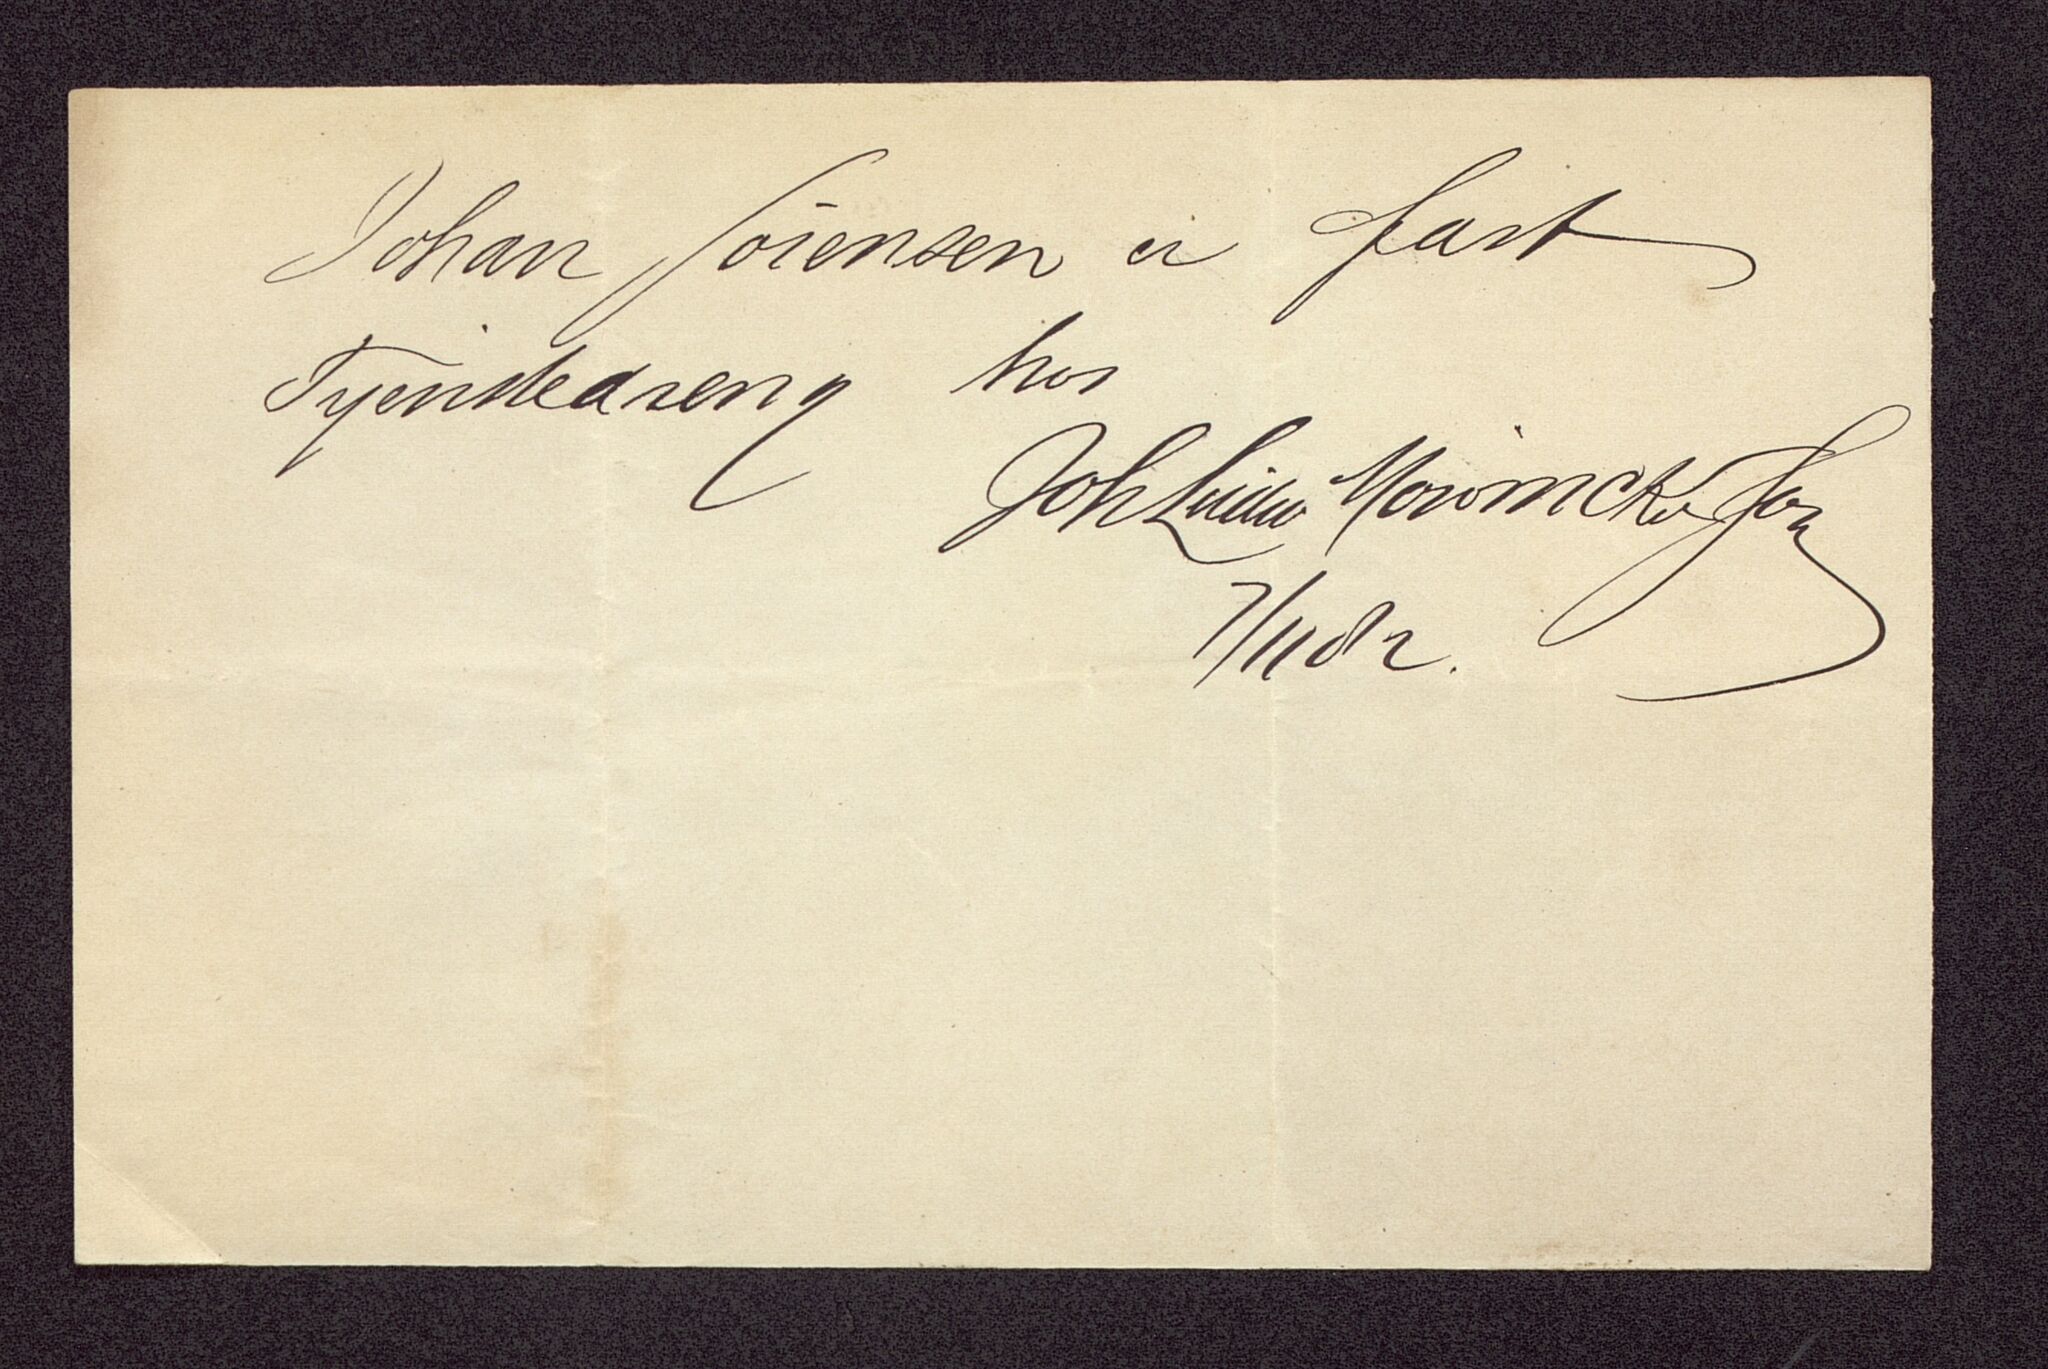 Johan Sörensen er fast
Tjenestedreng hos
Joh Ludw Mowinckel Jon
7/11 82.